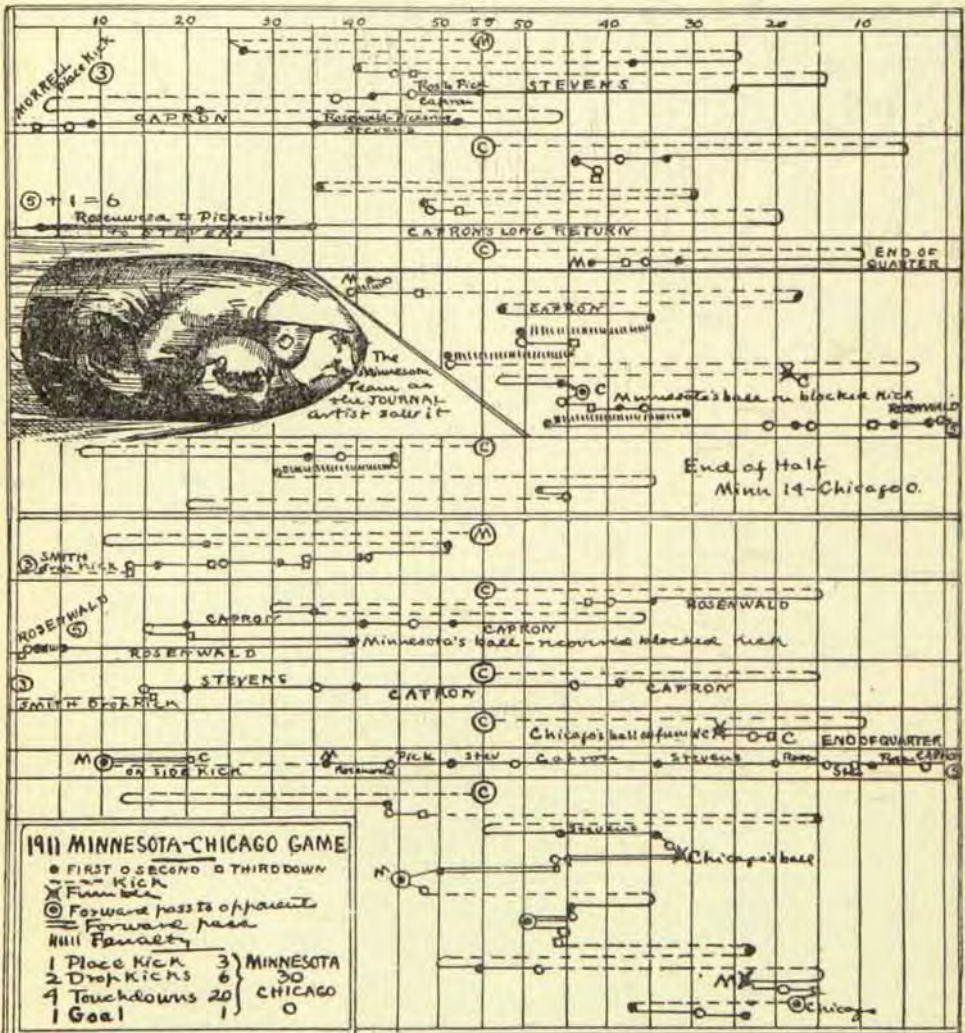 10 20 30 40 50 55 50 40 30 20 10
M
MORRELL
Place Kick
3
Ros to Pick
Capron
STEVENS
CAPRON
Rosenwald-Pickering
STEVENS
C
5 + 1 = 6
Rosenweld to Pickering
to STEVENS
CAPRON'S LONG RETURN
C
M
END OF
QUARTER
M
CAPRON
The
Minnesota
Team as
the JOURNAL
artist saw it
C
C
Minnesota's ball on blocked kick
ROSENWALD
5
C
End of Half
Minn 14-Chicago 0.
M
3
SMITH
Drop Kick
C
ROSENWALD
ROSENWALD
5
CAPRON
CAPRON
Minnesota's ball-recovered blocked kick
ROSENWALD
C
3
STEVENS
CAPRON
CAPRON
SMITH DROP KICK
C
Chicago's ball on fumble
C
END OF QUARTER
M
C
ON SIDE KICK
M
Pick
Stev
Capron
Stevens
CAPRON
5
C
Stevens
Chicago's ball
M
M
Chicago
1911 MINNESOTA-CHICAGO GAME
FIRST SECOND THIRD DOWN
Kick
Fumble
Forward pass to opponent
Forward pass
Penalty
1 Place Kick 3
2 Drop Kicks 6
4 Touchdowns 20
1 Goal 1
MINNESOTA
30
CHICAGO
0